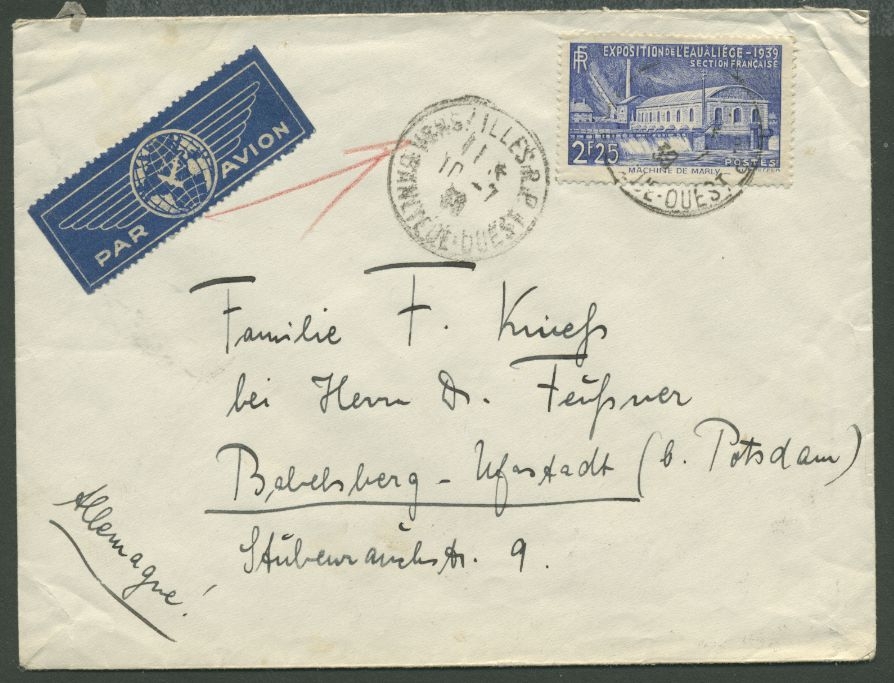 PAR AVION
RF
EXPOSITION DE L'EAU À LIÈGE - 1939
SECTION FRANÇAISE
2F25
POSTES
MACHINE DE MARLY
11
10 - 7
39
39
DE-OUEST
Familie F. Knieß
bei Herrn Dr. Feußner
Babelsberg - Ufastadt (b. Potsdam)
Stubenrauchstr. 9.
Allemagne!